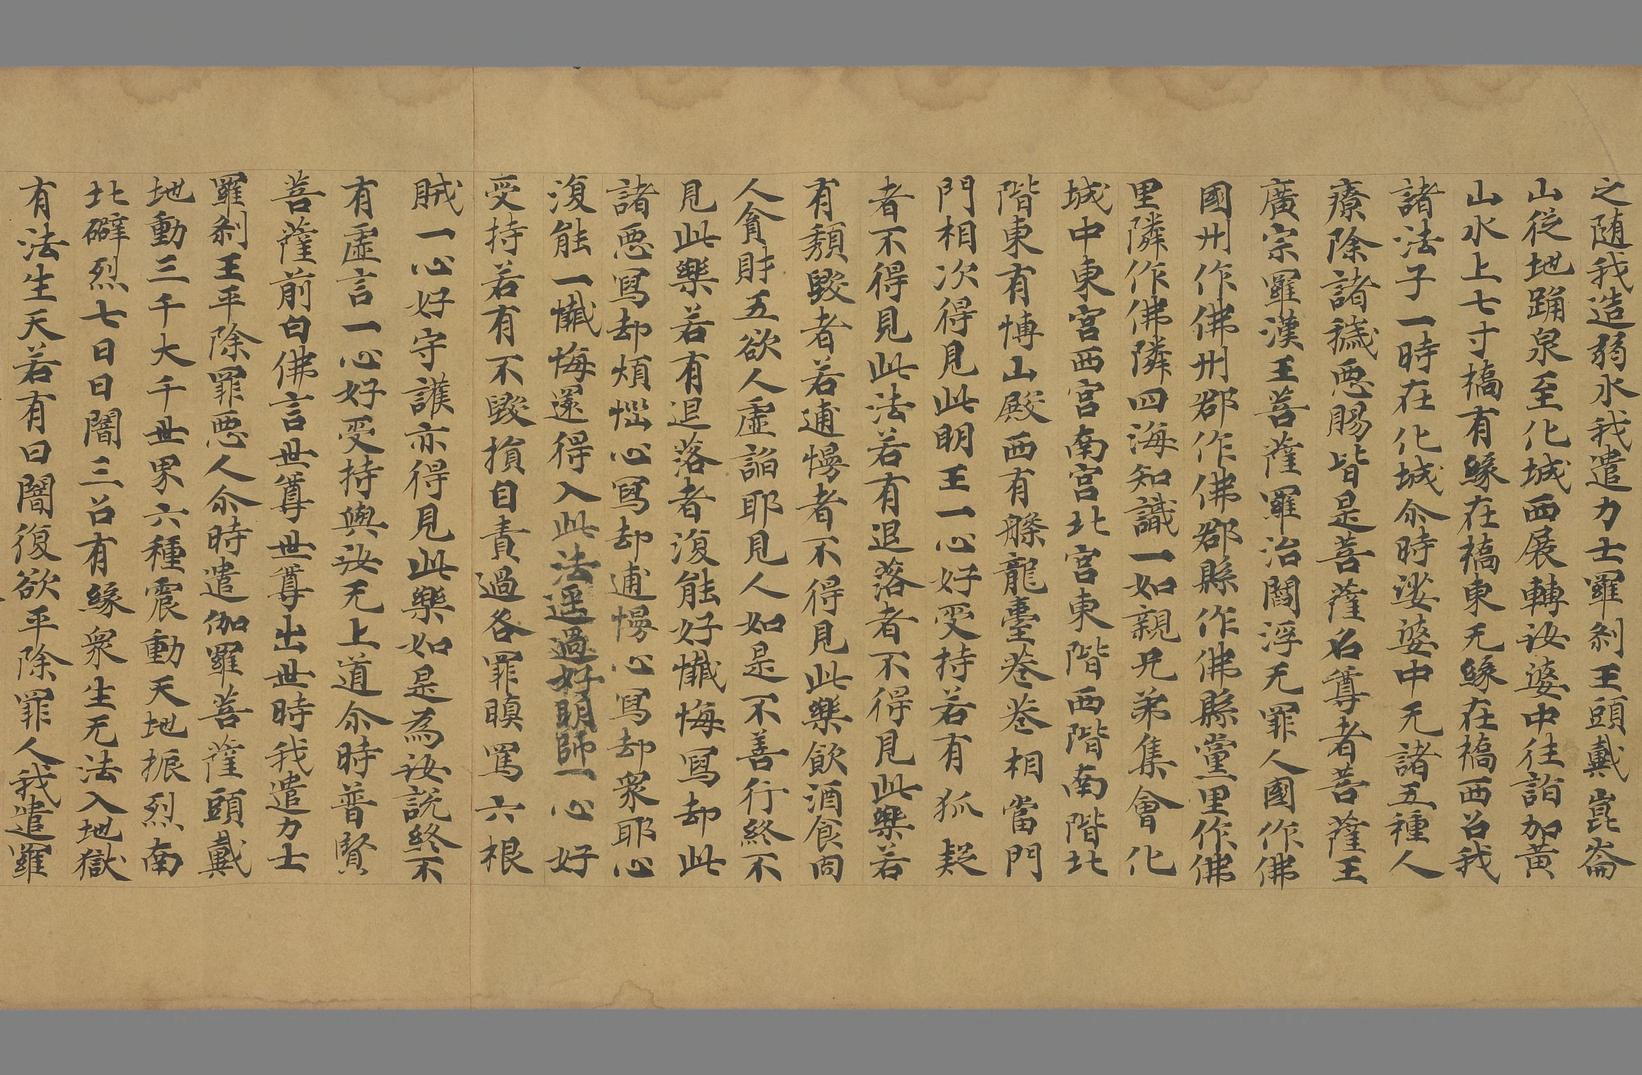 之随我造弱水我遣力士羅刹王頭戴崑崙
山從地踊泉至化城西展轉汝婆中往詣加黃
山水上七寸橋有緣在橋東无緣在橋西召我
諸法子一時在化城尒時娑婆中无諸五種人
療除諸穢惡賜皆是菩薩名尊者菩薩王
廣宗羅漢王菩薩羅治閻浮无罪人國作佛
國州作佛州郡作佛郡縣作佛縣黨里作佛
里隣作佛隣四海知識一如親兄弟集會化
城中東宮西宮南宮北宮東階西階南階北
階東有博山殿西有騰龍臺卷卷相當門
門相次得見此明王一心好受持若有狐疑
者不得見此法若有退落者不得見此樂若
有頽毀者若逋慢者不得見此樂飲酒食肉
人貪財五欲人虛諂耶見人如是不善行終不
見此樂若有退落者復能好懺悔寫却此
諸惡寫却煩惱心寫却逋慢心寫却衆耶心
復能一懺悔還得入此法遥過好明師一心好
受持若有不毀損自責過各罪瞋罵六根
賊一心好守護亦得見此樂如是為汝說終不
有虛言一心好受持與汝无上道尒時普賢
菩薩前白佛言世尊世尊出世時我遣力士
羅刹王平除罪惡人尒時遣伽羅菩薩頭戴
地動三千大千世界六種震動天地振烈南
北礔烈七日日闇三召有緣衆生无法入地獄
有法生天若有日闇復欲平除罪人我遣羅